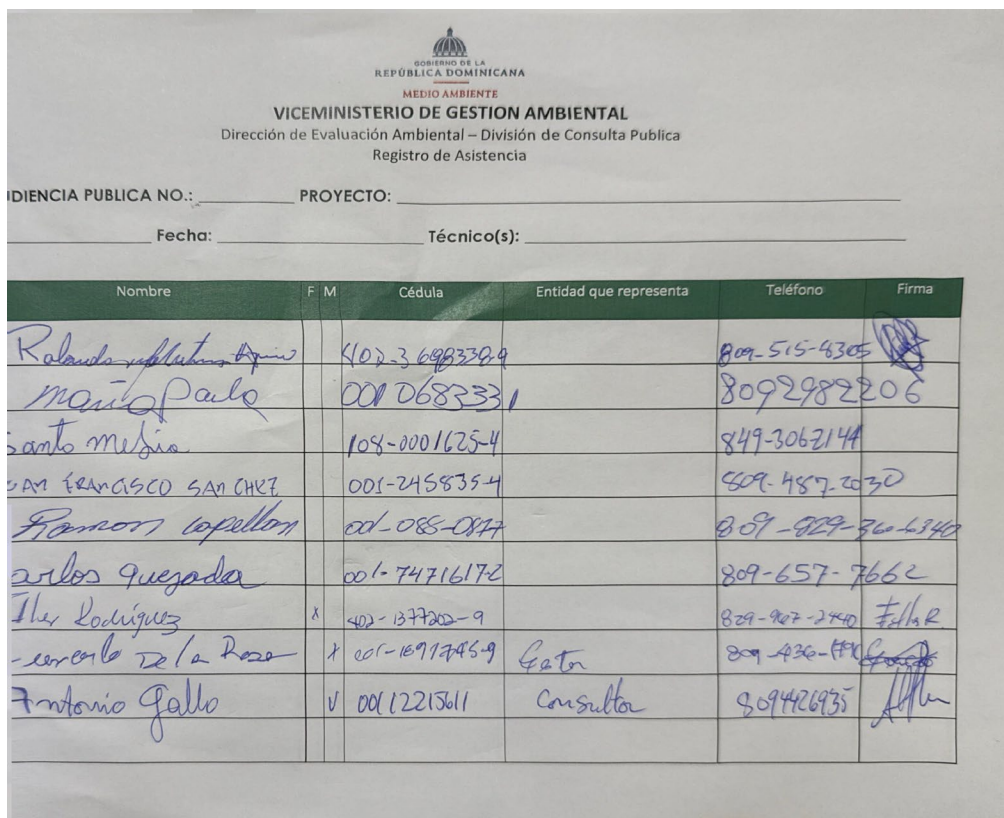 GOBIERNO DE LA
REPÚBLICA DOMINICANA
MEDIO AMBIENTE
VICEMINISTERIO DE GESTION AMBIENTAL
Dirección de Evaluación Ambiental – División de Consulta Publica
Registro de Asistencia
DIENCIA PUBLICA NO.: PROYECTO:
Fecha: Técnico(s):
Nombre F M Cédula Entidad que representa Teléfono Firma
402-3698338-9 809-515-4305
Maria Paula 001068333 8092982206
Santo Mejia 108-0001625-4 849-3062144
FRANCISCO SANCHEZ 001-245835-4 809-487-2030
Ramon Capellan 001-085-0877
arlos Quezada 001-7471617-2 809-657-7662
Rodríguez x 402-1377202-9 829-967-2440
De la Rosa x 001-1691745-9
Antonio Gallo 00112215611 Consultor 8094426935